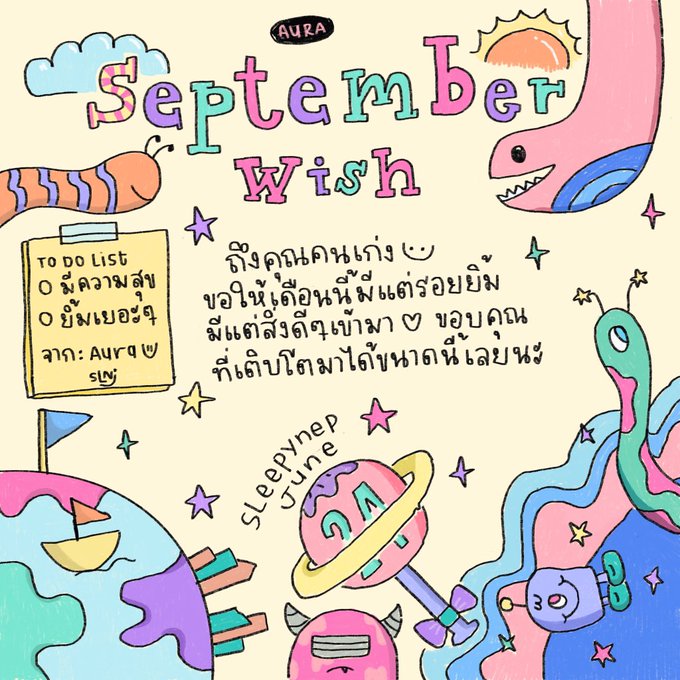 AURA
September
Wish
TO DO LIST
มีความสุข
ยิ้มเยอะๆ
จาก: Aura
ถึงคุณคนเก่ง
ขอให้เดือนนี้มีแต่รอยยิ้ม
มีแต่สิ่งดีๆเข้ามา ♡ ขอบคุณ
ที่เติบโตมาได้ขนาดนี้เลยนะ
sleepynep
June